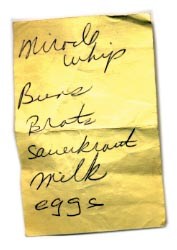 Miracle
whip
Buns
Brats
Sauerkraut
Milk
eggs